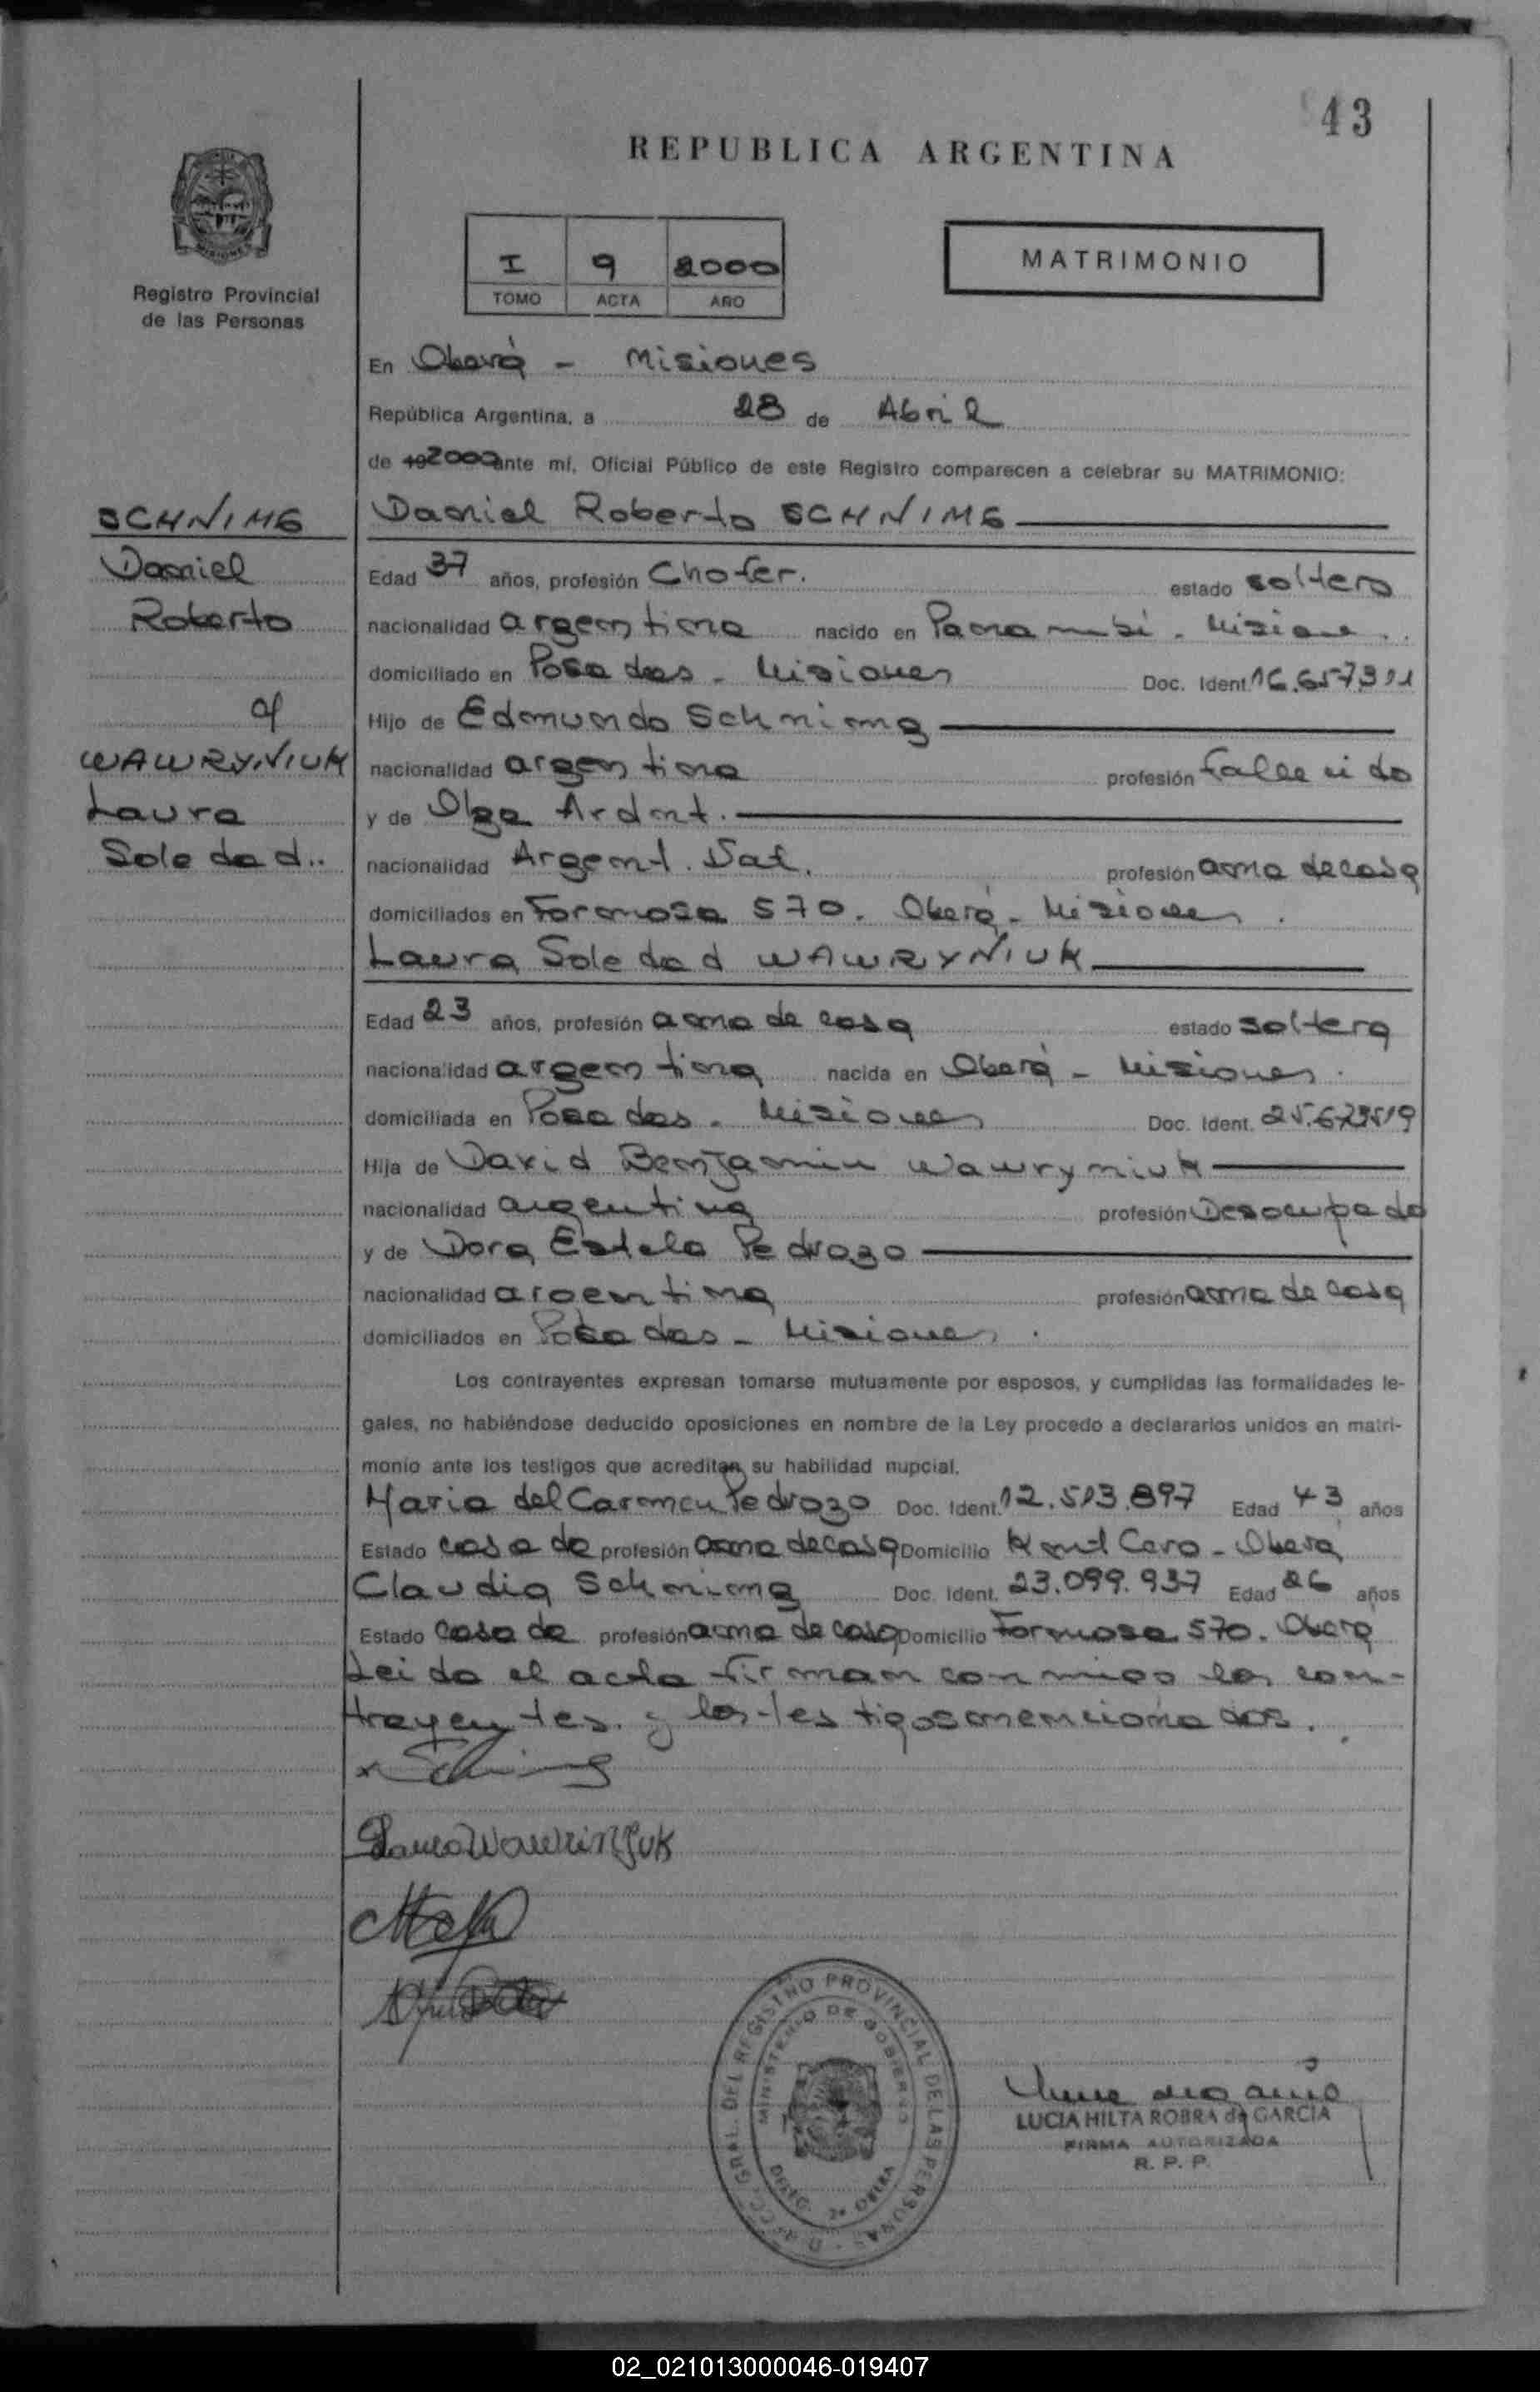 43
REPUBLICA ARGENTINA
MISIONES
Registro Provincial
de las Personas
I 9 2000
TOMO ACTA AÑO
MATRIMONIO
En Oberá - Misiones
República Argentina, a 28 de Abril
de 192000 ante mí, Oficial Público de este Registro comparecen a celebrar su MATRIMONIO:
SCHNIMG
Daniel
Roberto
WAWRYNIUK
Laura
Soledad..
Daniel Roberto SCHNIMG
Edad 37 años, profesión Chofer. estado soltero
nacionalidad argentina nacido en Panambí - Misiones
domiciliado en Posadas - Misiones Doc. Ident. 16.657.311
Hijo de Edmundo Schnimg
nacionalidad argentina profesión Fallecido
y de Olga Ardnt.
nacionalidad Argent. Nat. profesión ama de casa
domiciliados en Formosa 570. Oberá - Misiones.
Laura Soledad WAWRYNIUK
Edad 23 años, profesión ama de casa estado soltera
nacionalidad argentina nacida en Oberá - Misiones.
domiciliada en Posadas - Misiones Doc. Ident.
Hija de David Benjamin Wawryniuk
nacionalidad argentina profesión Desocupado
y de Dora Estela Pedrozo
nacionalidad argentina profesión ama de casa
domiciliados en Posadas - Misiones.
Los contrayentes expresan tomarse mutuamente por esposos, y cumplidas las formalidades le-
gales, no habiéndose deducido oposiciones en nombre de la Ley procedo a declararlos unidos en matri-
monio ante los testigos que acreditan su habilidad nupcial.
Maria del Carmen Pedrozo Doc. Ident. 12.513.897 Edad 43 años
Estado casada profesión ama de casa Domicilio Oberá
Claudia Schnimg Doc. Ident. 23.099.937 Edad 26 años
Estado casada profesión ama de casa Domicilio Formosa 570. Oberá
Leida el acta firman conmigo los con-
trayentes y los testigos mencionados.
Laura Wawrinjuk
DEL REGISTRO PROVINCIAL DE LAS PERSONAS
MINISTERIO DE GOBIERNO
DELEG. 2ª OBERA
LUCIA HILTA ROBRA de GARCIA
FIRMA AUTORIZADA
R. P. P.
02_021013000046-019407